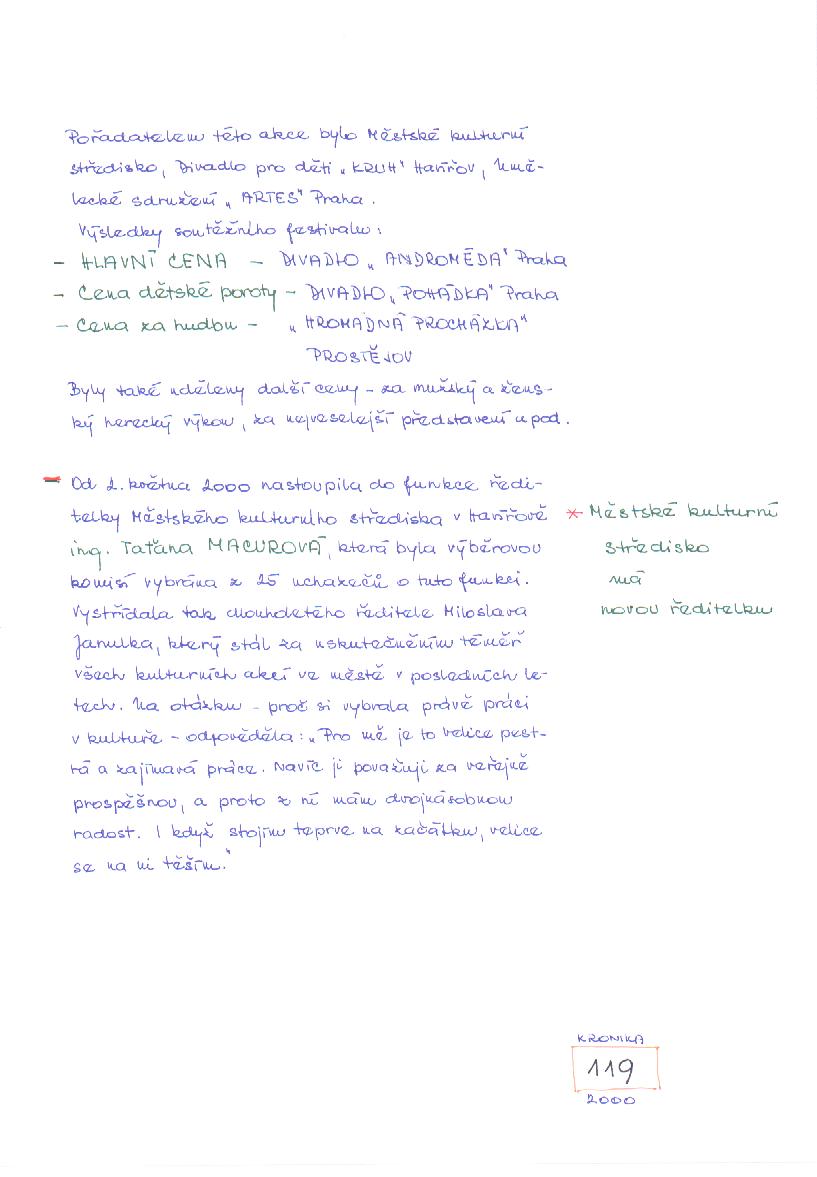 Pořadatelem této akce bylo Městské kulturní
středisko, Divadlo pro děti „KRUH" Havířov, Umě-
lecké sdružení „ARTES" Praha.
Výsledky soutěžního festivalu:
- HLAVNÍ CENA - DIVADLO „ANDROMÉDA" Praha
- Cena dětské poroty - DIVADLO „POHÁDKA" Praha
- Cena za hudbu - „HROMADNÁ PROCHÁZKA"
PROSTĚJOV
Byly také uděleny další ceny - za mužský a žens-
ký herecký výkon, za nejveselejší představení a pod.
- Od 2. května 2000 nastoupila do funkce ředi-
telky Městského kulturního střediska v Havířově
ing. Taťána MACUROVÁ, která byla výběrovou
komisí vybrána z 25 uchazečů o tuto funkci.
Vystřídala tak dlouholetého ředitele Miloslava
Janulka, který stál za uskutečněním téměř
všech kulturních akcí ve městě v posledních le-
tech. Na otázku - proč si vybrala právě práci
v kultuře - odpověděla: „Pro mě je to velice pest-
rá a zajímavá práce. Navíc ji považuji za veřejně
prospěšnou, a proto z ní mám dvojnásobnou
radost. I když stojím teprve na začátku, velice
se na ni těším."
* Městské kulturní
středisko
má
novou ředitelku
KRONIKA
119
2000